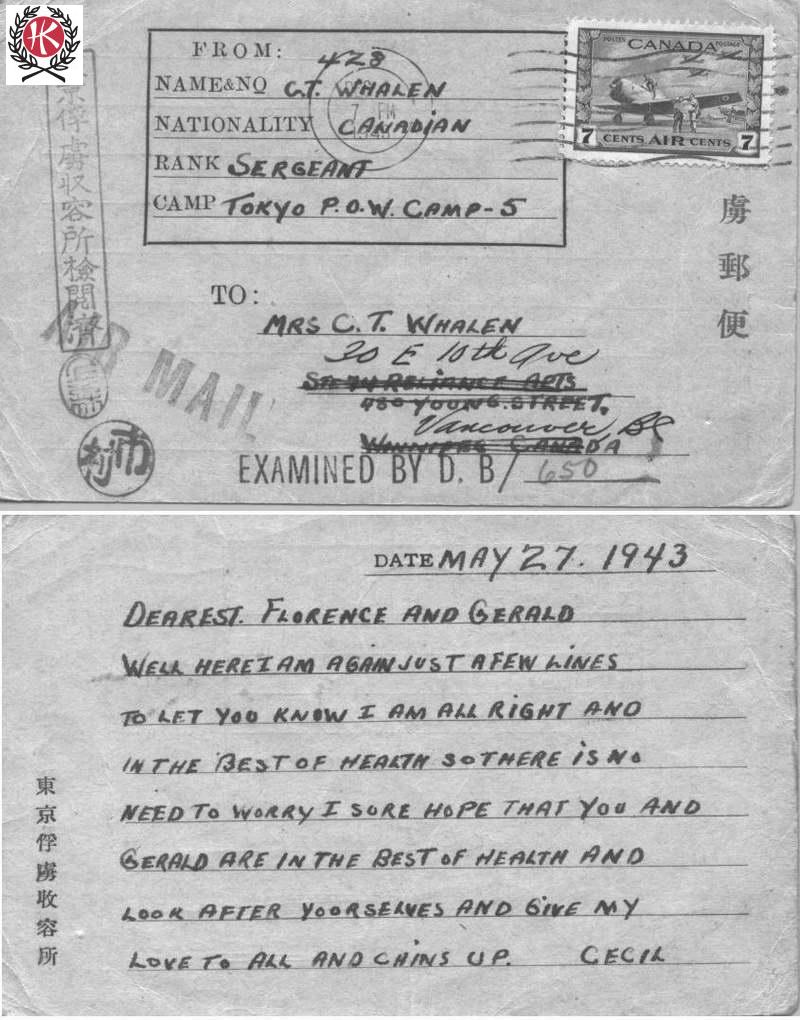 HK
FROM:
428
NAME&NO C.T. WHALEN
NATIONALITY CANADIAN
RANK SERGEANT
CAMP TOKYO P.O.W. CAMP-5
7 PM
POSTES CANADA POSTAGE
7 CENTS AIR CENTS 7
京俘虜収容所検閲濟
虜郵便
TO:
MRS C. T. WHALEN
30 E 10th Ave
RELIANCE APTS
480 YOUNG. STREET.
Vancouver, BC
WINNIPEG CANADA
AIR MAIL
EXAMINED BY D. B/ 650
DATE MAY 27. 1943
DEAREST. FLORENCE AND GERALD
WELL HERE I AM AGAIN JUST A FEW LINES
TO LET YOU KNOW I AM ALL RIGHT AND
IN THE BEST OF HEALTH SO THERE IS NO
NEED TO WORRY I SURE HOPE THAT YOU AND
GERALD ARE IN THE BEST OF HEALTH AND
LOOK AFTER YOORSELVES AND GIVE MY
LOVE TO ALL AND CHINS UP. CECIL
東京俘虜收容所